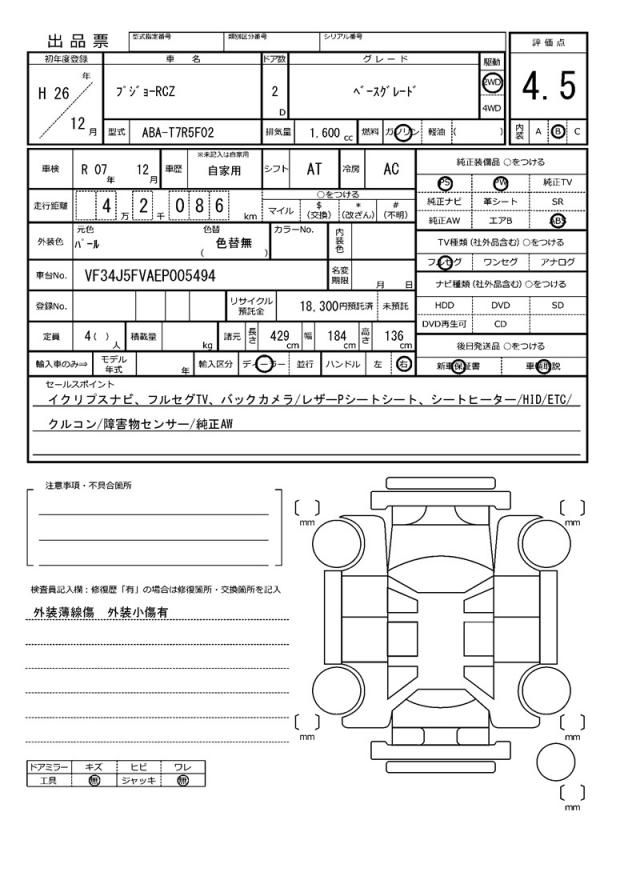 出品票
型式指定番号 類別区分番号 シリアル番号
評価点
4.5
初年度登録 車名 ドア数 グレード 駆動
H 26 年 12 月
プジョーRCZ 2 D ベースグレード 2WD 4WD
型式 ABA-T7R5F02 排気量 1.600 cc 燃料 ガソリン 軽油 ( )
内装 A B C
車検 R 07 年 12 月 車歴 ※未記入は自家用 自家用 シフト AT 冷房 AC
純正装備品 ○をつける
PS PW 純正TV
純正ナビ 革シート SR
純正AW エアB ABS
走行距離 4 万 2 千 0 8 6 km
○をつける
マイル $(交換) *(改ざん) #(不明)
外装色 元色 パール 色替 ( 色替無 ) カラーNo. 内装色
TV種類(社外品含む)○をつける
フルセグ ワンセグ アナログ
車台No. VF34J5FVAEP005494 名変期限 月 日
ナビ種類(社外品含む)○をつける
HDD DVD SD
DVD再生可 CD
登録No. リサイクル預託金 18,300円預託済 未預託
定員 4( ) 人 積載量 kg 諸元 長さ 429 cm 幅 184 cm 高さ 136 cm
後日発送品 ○をつける
新車保証書 車輌取説
輸入車のみ⇒ モデル年式 年 輸入区分 ディーラー 並行 ハンドル 左 右
セールスポイント
イクリプスナビ、フルセグTV、バックカメラ/レザーPシートシート、シートヒーター/HID/ETC/
クルコン/障害物センサー/純正AW
注意事項・不具合箇所
検査員記入欄:修復歴「有」の場合は修復箇所・交換箇所を記入
外装薄線傷 外装小傷有
mm
mm
mm
mm
mm
ドアミラー キズ ヒビ ワレ
工具 無 ジャッキ 無